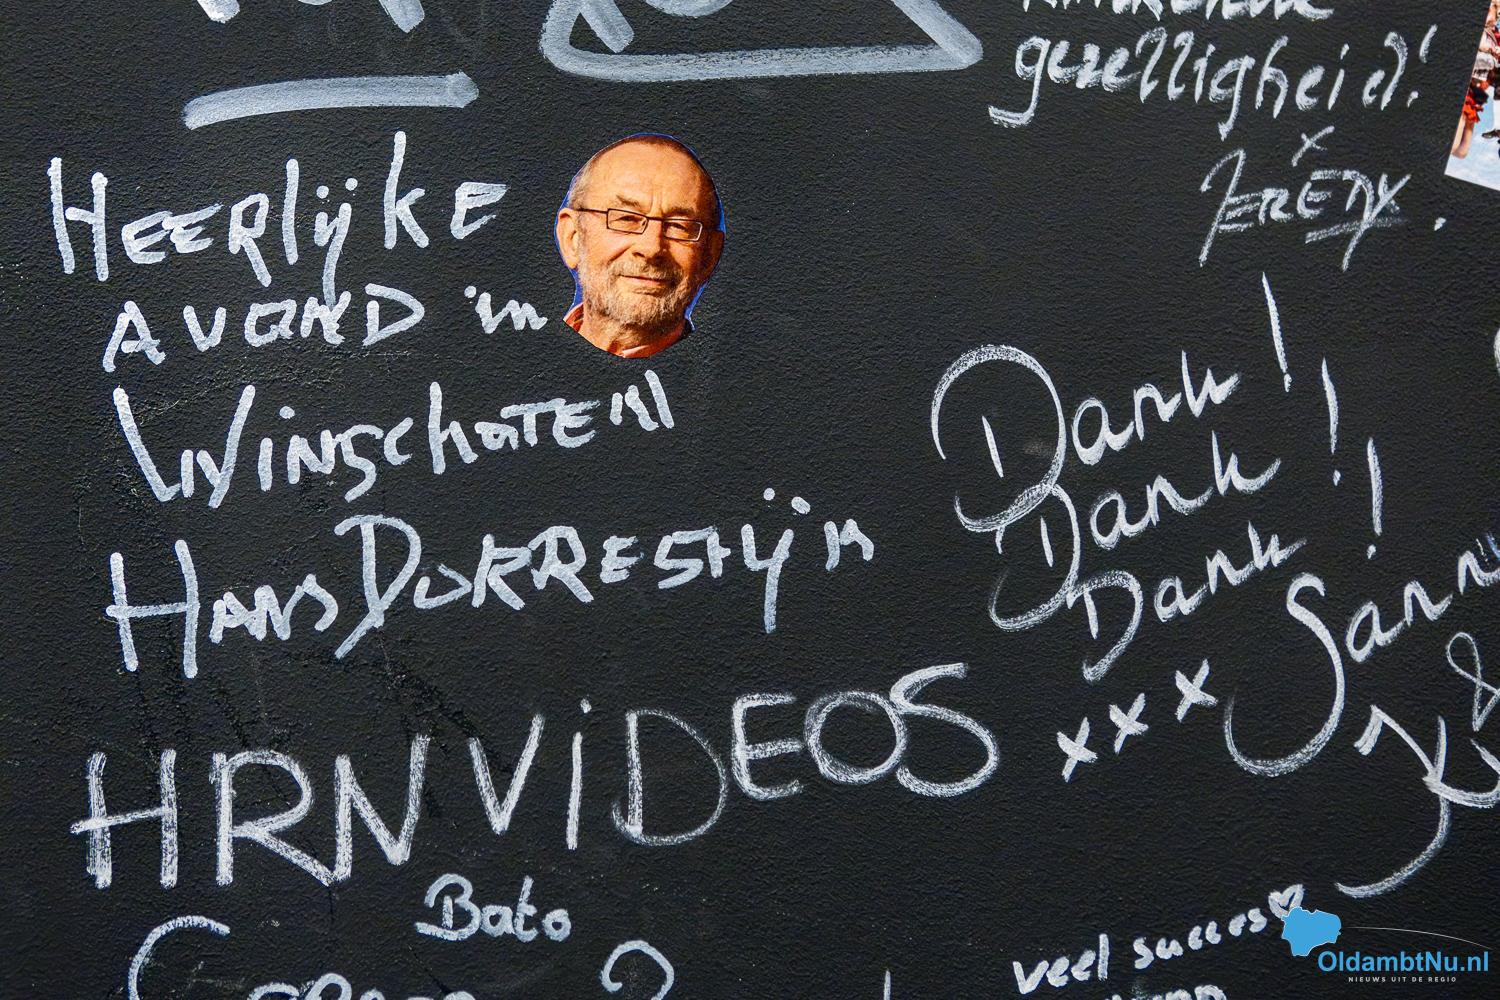 gezelligheid!
x
HEERlijKE
AVOND in
WinschoTEN
HANS DORRESTijN
Dank!
Dank!
Dank!
xxx
HRN ViDEOS
Bato
veel succes
OldambtNu.nl
NIEUWS UIT DE REGIO